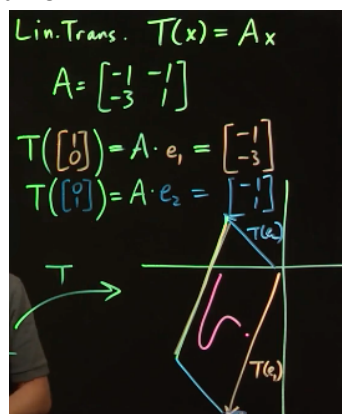 Lin. Trans. T(x) = Ax
A = [-1 -1; -3 1]
T([1; 0]) = A · e₁ = [-1; -3]
T([0; 1]) = A · e₂ = [-1; 1]
T(e₂)
T
T(e₁)